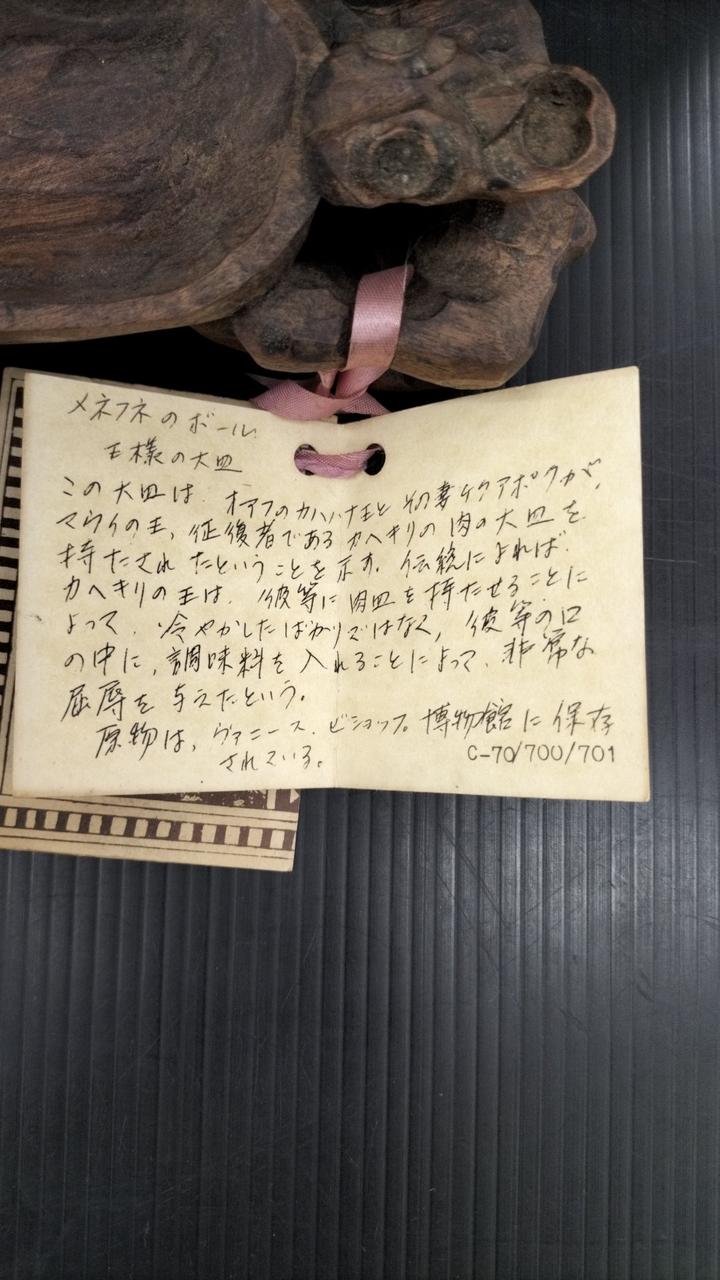 メネフネのボール
王様の大皿
この大皿は、オアフのカハハナ王と その妻ケクアポウが、
マウイの王、征復者である カヘキリの 肉の大皿を
持たされ たということを示す。伝統によれば、
カヘキリの王は、彼等に肉皿を持たせることに
よって、冷やかしたばかりではなく、彼等の口
の中に、調味料を入れることによって、非常な
屈辱を与えたという。
原物は、ヴァニース、ビショップ。博物館に保存
されている。
C-70/700/701